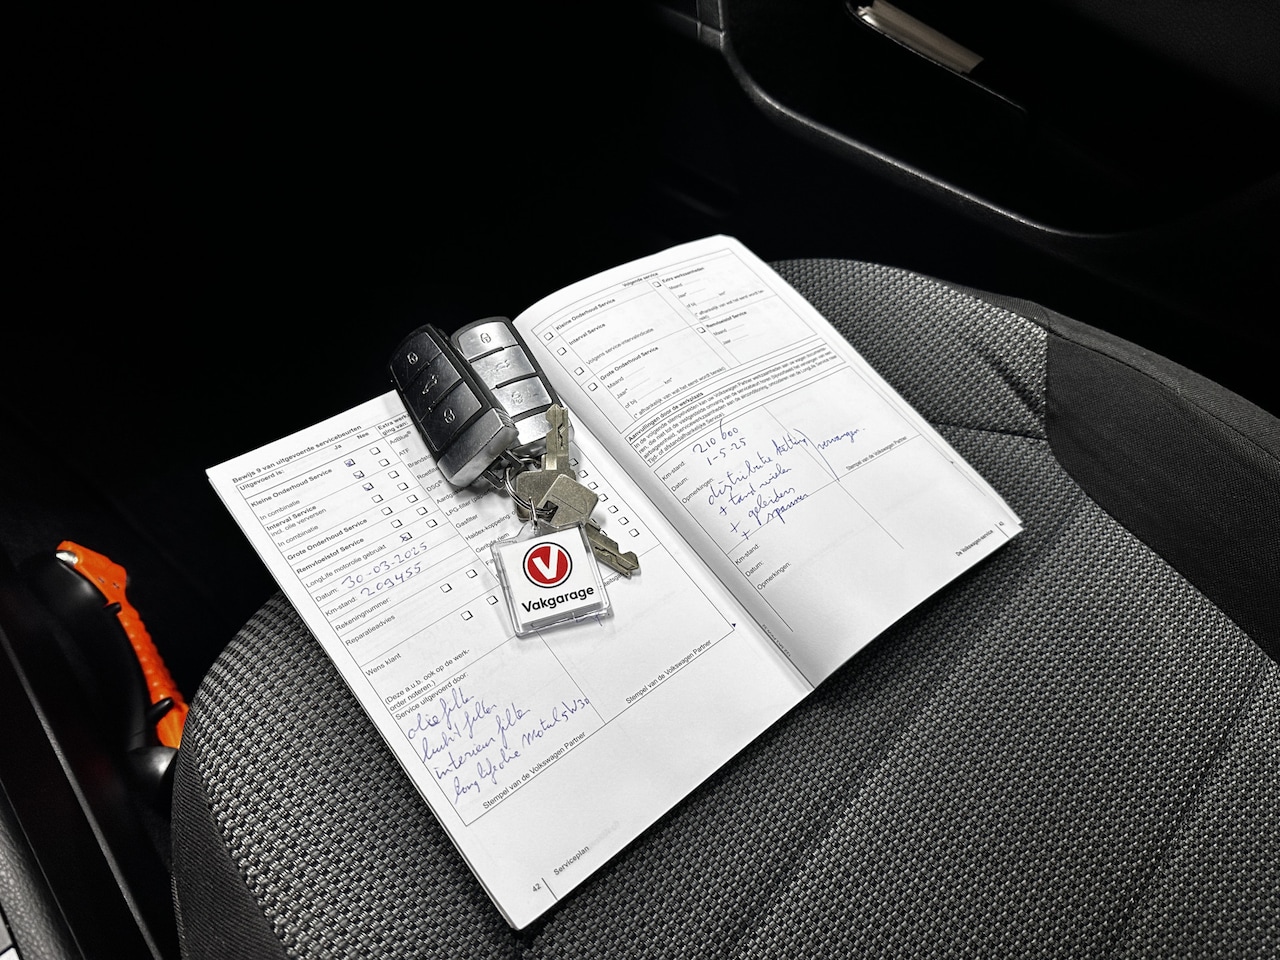 Bewijs 9 van uitgevoerde servicebeurten
Uitgevoerd is:
Ja
Nee
Kleine Onderhoud Service
In combinatie
Interval Service
incl. olie verversen
In combinatie
Grote Onderhoud Service
Remvloeistof Service
LongLife motorolie gebruikt
Datum: 30-03-2025
Km-stand: 209455
Rekeningnummer:
Reparatieadvies
Wens klant
(Deze a.u.b. ook op de werk-
order noteren.)
Service uitgevoerd door:
oliefilter
luchtfilter
interieur filter
longlife olie Motul 5W30
Stempel van de Volkswagen Partner
Extra werk
ging van:
AdBlue®
ATF
DSG®
LPG-filter
Gasfilter
Haldex-koppeling
Stempel van de Volkswagen Partner
42
Serviceplan
V
Vakgarage
Volgende service
Kleine Onderhoud Service
Interval Service
Volgens service-intervalindicatie
Grote Onderhoud Service
Maand
Jaar*
of bij
km*
(* afhankelijk van wat het eerst wordt bereikt)
Extra werkzaamheden
Maand
Jaar*
of bij
km*
Remvloeistof Service
Maand
Jaar
Aanvullingen door de werkplaats
Km-stand: 210600
Datum: 1-5-25
Opmerkingen: distributie ketting
+ tandwielen
+ geleiders
+ spanner
vervangen.
Stempel van de Volkswagen Partner
Km-stand:
Datum:
Opmerkingen:
De Volkswagen-service
43